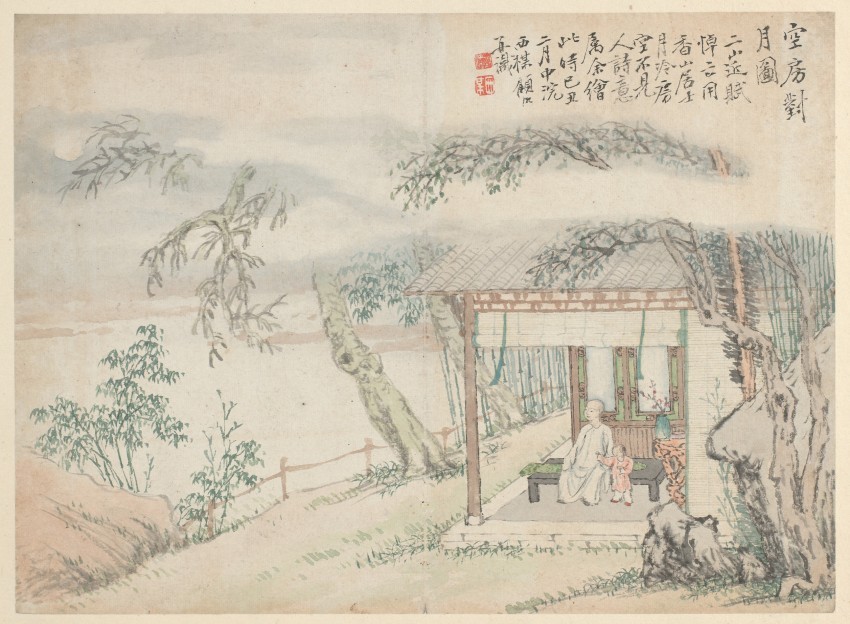 空房對
月圖
二山近賦
悼亡用
香山居士
月冷房
空不見
人詩意
屬余繪
此時己丑
二月中浣
西楳顧洛
并識